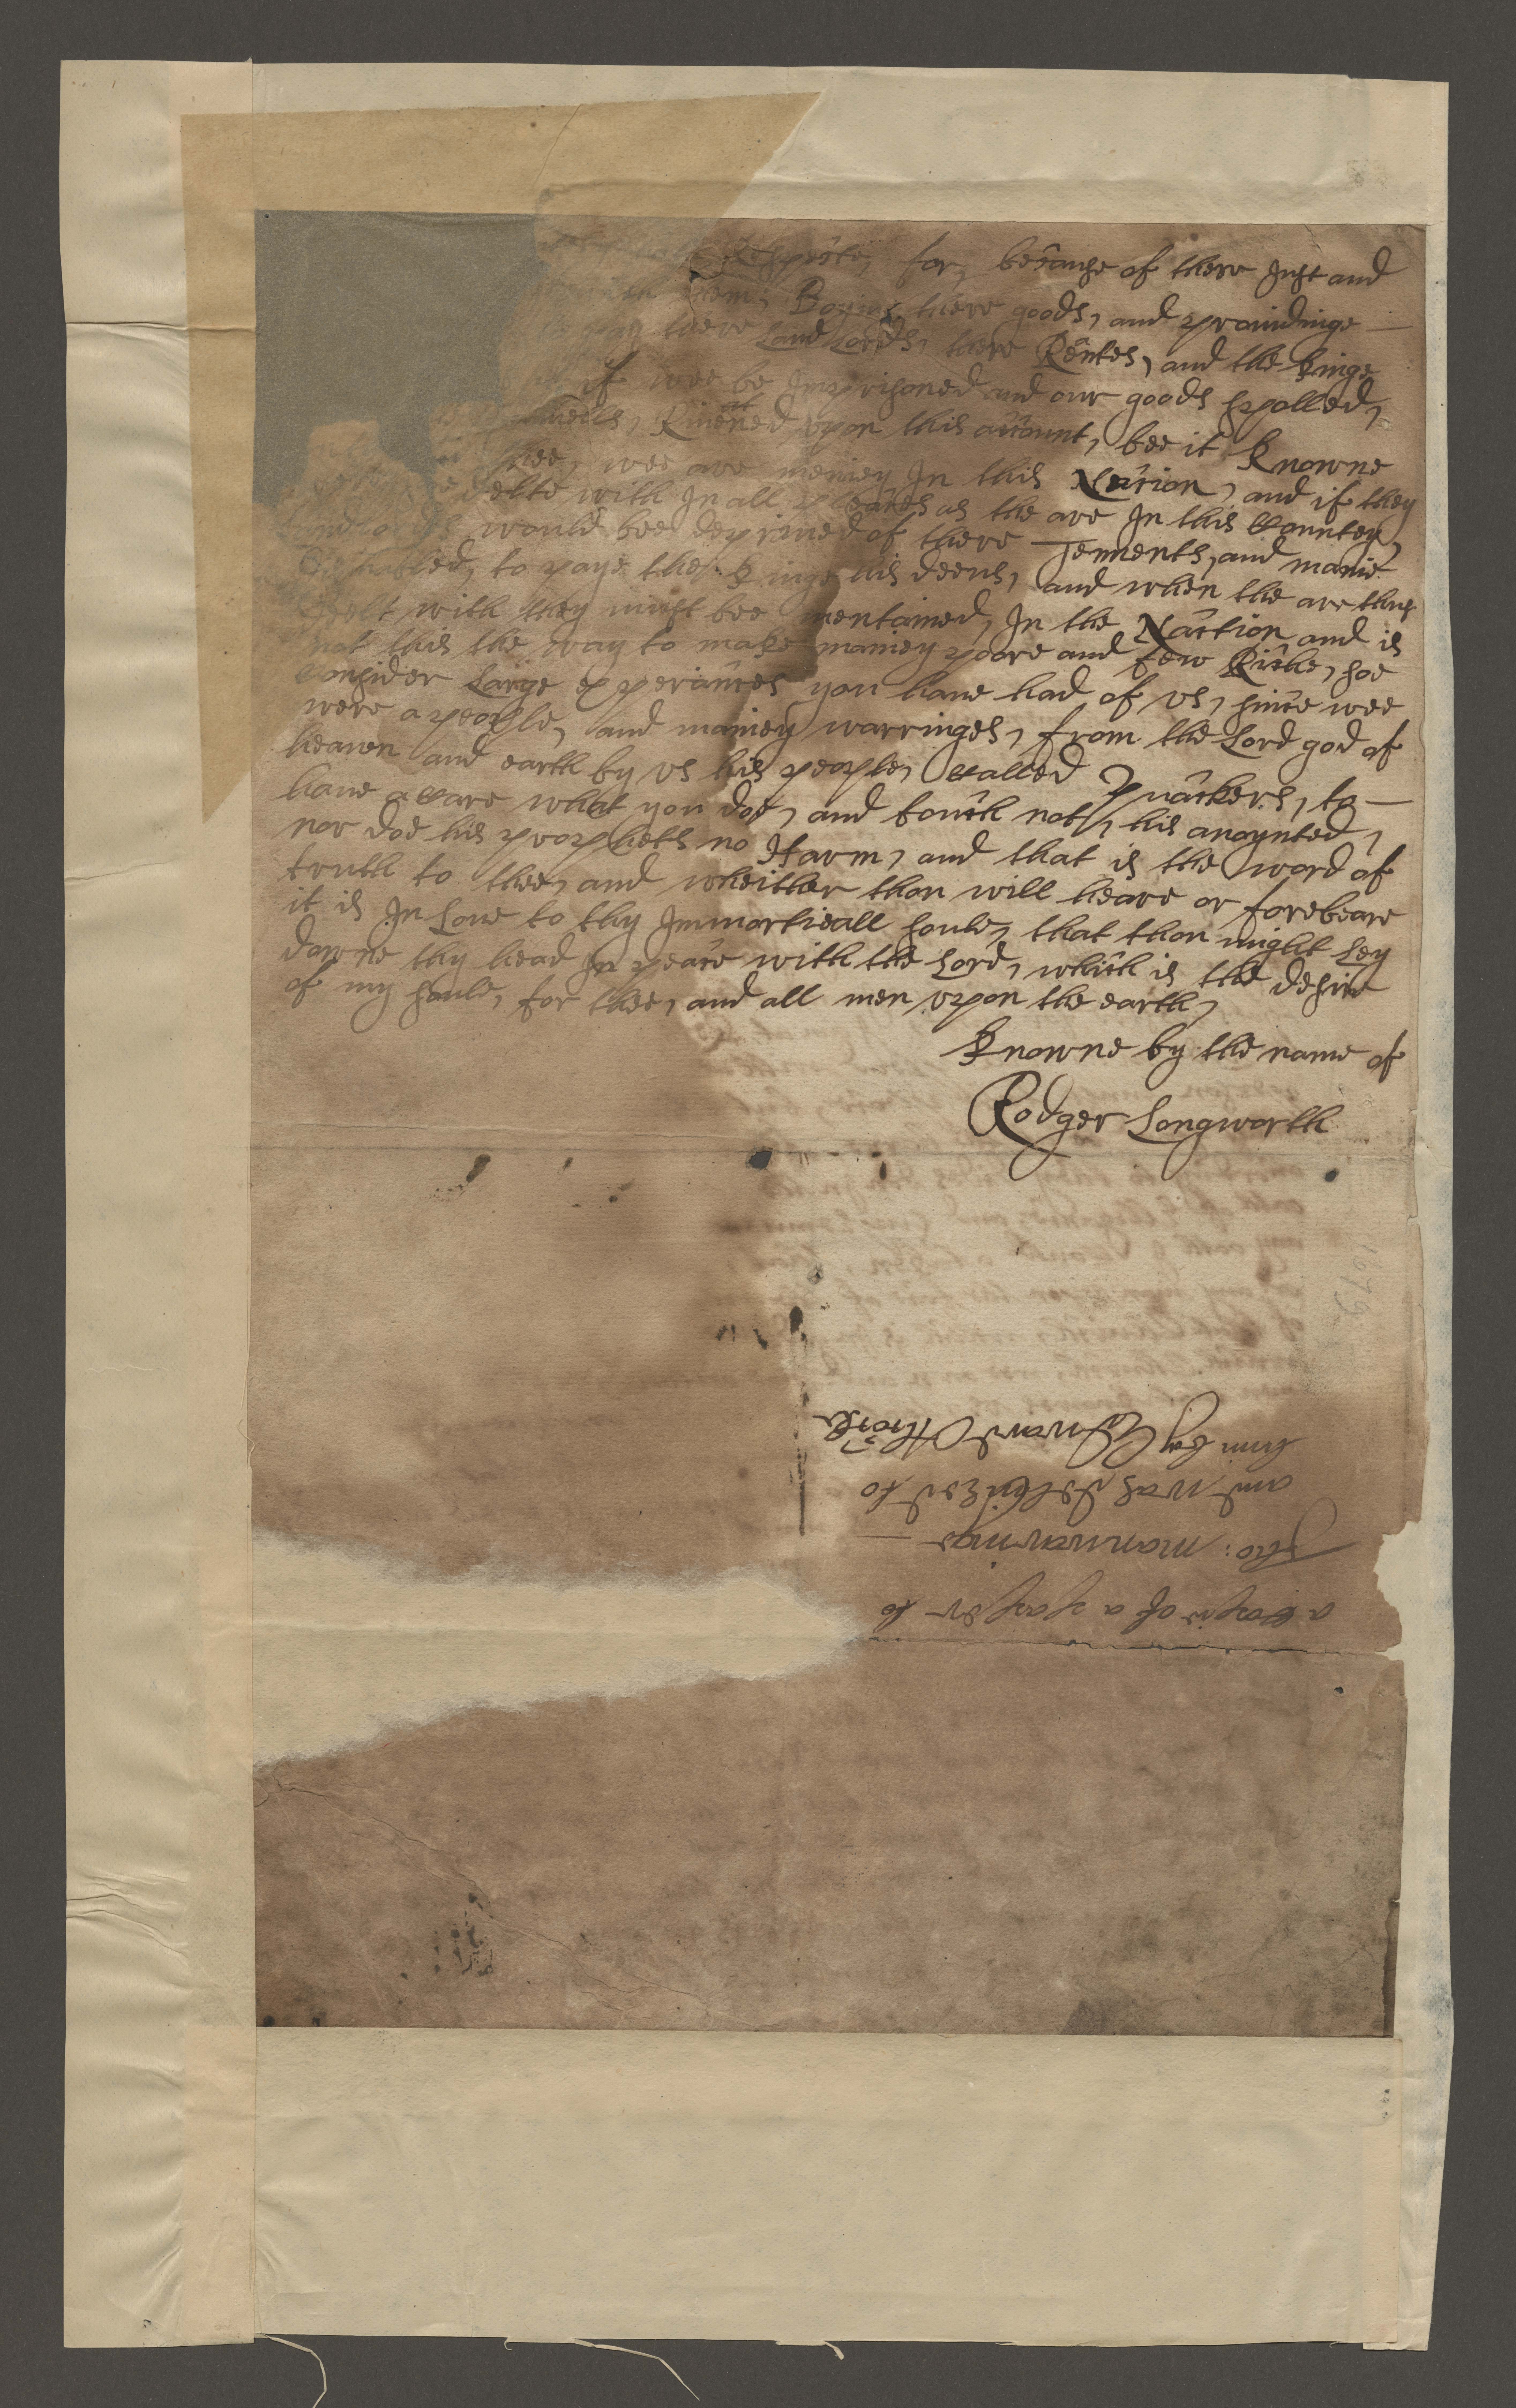 Respecte, for, because of there Just and
them, Boying there goods, and provindinge —
pay there Land Lords, there Rentes, and the kinge
if wee be Imprisoned and our goods spolled,
Ruened upon this account, bee it knowne
thee, wee are meniey In this Nation, and if they
delte with In all pleaces as the are In this Countey,
Land Lords would bee deprived of there Tenments, and manie
disabled, to paye the kinge his deeus, and when the are thus
delt with they must bee mentained, In the Naction and is
not this the way to make maniey poore and few Riche, soe
Consider Large experiances you have had of us, since wee
were a people, and maniey warringes, from the Lord god of
heaven and earth by us his people, Called Quackers, to —
have a Care what you doe, and touch not, his anoynted,
nor doe his propheths no Harm, and that is the word of
truth to thee, and wheither thou will heare or forebeare
it is In Love to thy Immortieall soule, that thou might Ley
downe thy head In peace with the Lord, which is the desire
of my soule, for thee, and all men upon the earth,
knowne by the name of
Rodger Longworth
a Copie of a paper to
Tho: manwaringe —
and was delivered to
him by Edward